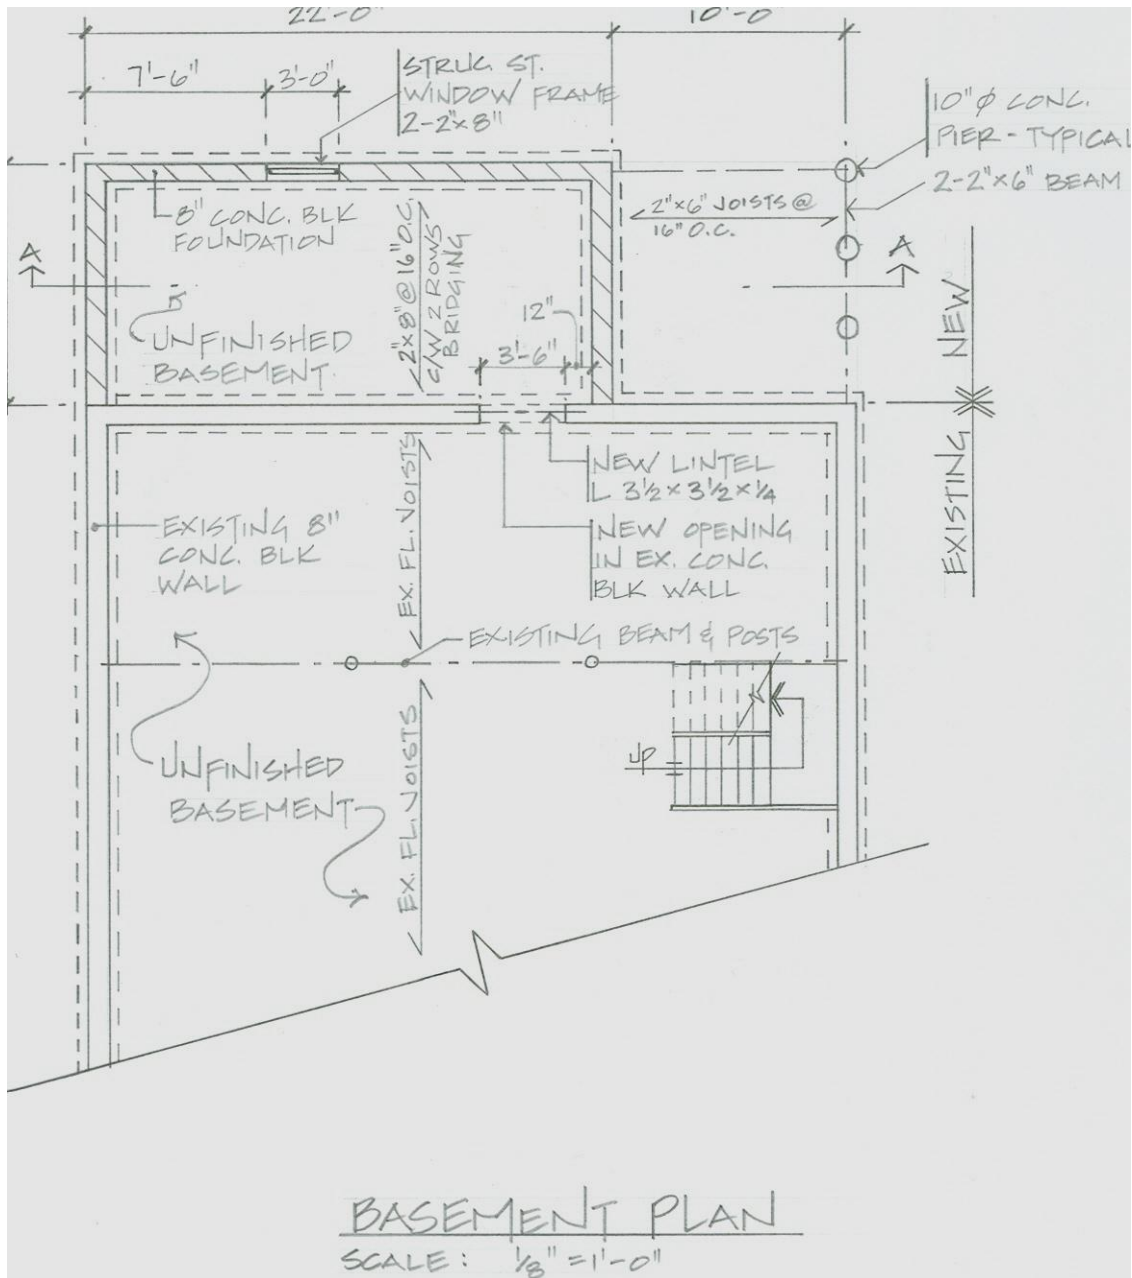 22'-0"
10'-0"
7'-6"
3'-0"
STRUC. ST.
WINDOW FRAME
2-2"x8"
10"ϕ CONC.
PIER - TYPICAL
2-2"x6" BEAM
8" CONC. BLK
FOUNDATION
2"x6" JOISTS @
16" O.C.
2"x8" @ 16" O.C.
C/W 2 ROWS
BRIDGING
A
A
12"
3'-6"
UNFINISHED
BASEMENT
NEW
EXISTING
NEW LINTEL
L 3½ x 3½ x ¼
NEW OPENING
IN EX. CONC.
BLK WALL
EXISTING 8"
CONC. BLK
WALL
EX. FL. JOISTS
EXISTING BEAM & POSTS
UP
UNFINISHED
BASEMENT
EX. FL. JOISTS
BASEMENT PLAN
SCALE: ⅛" = 1'-0"